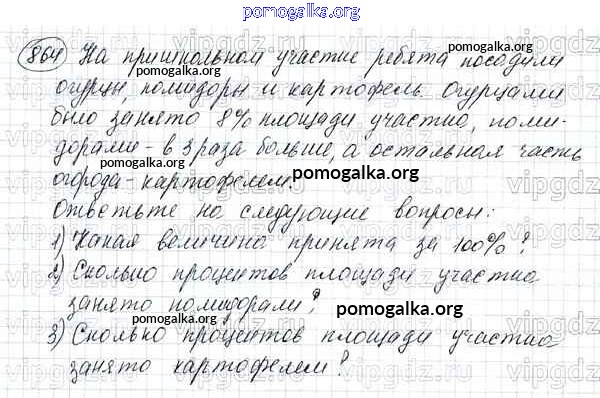 pomogalka.org
864 На пришкольном участке ребята посадили
pomogalka.org
огурцы, помидоры и картофель. Огурцами
было занято 8% площади участка, поми-
pomogalka.org
дорами - в 3 раза больше, а остальная часть
pomogalka.org
огорода - картофелем.
pomogalka.org
Ответьте на следующие вопросы:
1) Какая величина принята за 100%?
2) Сколько процентов площади участка
занято помидорами?
pomogalka.org
pomogalka.org
3) Сколько процентов площади участка
занято картофелем?